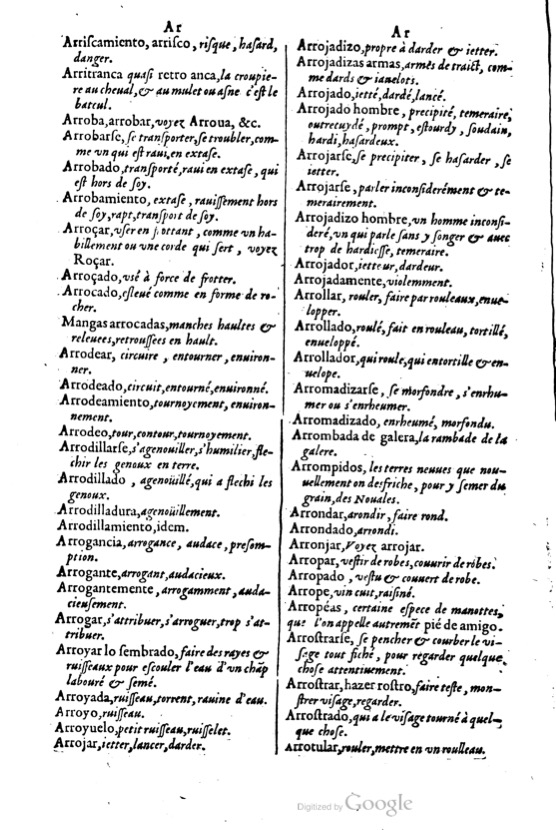 Ar
Arriscamiento, arrisco, risque, hasard,
danger.
Arritranca quasi retro anca, la croupie-
re au cheual, & au mulet ou asne c'est le
batcul.
Arroba, arrobar, voyez Arroua, &c.
Arrobarse, se transporter, se troubler, com-
me vn qui est raui, en extase.
Arrobado, transporté, raui en extase, qui
est hors de soy.
Arrobamiento, extase, rauissement hors
de soy, rapt, transport de soy.
Arroçar, vser en frottant, comme vn ha-
billement ou vne corde qui sert, voyez
Roçar.
Arroçado, vsé à force de frotter.
Arrocado, esleué comme en forme de ro-
cher.
Mangas arrocadas, manches haultes &
releuees, retroussees en hault.
Arrodear, circuire, entourner, enuiron-
ner.
Arrodeado, circuit, entourné, enuironné.
Arrodeamiento, tournoyement, enuiron-
nement.
Arrodeo, tour, contour, tournoyement.
Arrodillarse, s'agenouiller, s'humilier, fle-
chir les genoux en terre.
Arrodillado, agenoüillé, qui a flechi les
genoux.
Arrodilladura, agenoüillement.
Arrodillamiento, idem.
Arrogancia, arrogance, audace, presom-
ption.
Arrogante, arrogant, audacieux.
Arrogantemente, arrogamment, auda-
cieusement.
Arrogar, s'attribuer, s'arroguer, trop s'at-
tribuer.
Arroyar lo sembrado, faire des rayes &
ruisseaux pour escouler l'eau d'vn chãp
labouré & semé.
Arroyada, ruisseau, torrent, rauine d'eau.
Arroyo, ruisseau.
Arroyuelo, petit ruisseau, ruisselet.
Arrojar, ietter, lancer, darder.
Ar
Arrojadizo, propre à darder & ietter.
Arrojadizas armas, armes de traict, com-
me dards & iauelots.
Arrojado, ietté, dardé, lancé.
Arrojado hombre, precipité, temeraire,
outrecuydé, prompt, estourdy, soudain,
hardi, hasardeux.
Arrojarse, se precipiter, se hasarder, se
ietter.
Arrojarse, parler inconsiderément & te-
merairement.
Arrojadizo hombre, vn homme inconsi-
deré, vn qui parle sans y songer & auec
trop de hardiesse, temeraire.
Arrojador, ietteur, dardeur.
Arrojadamente, violemment.
Arrollar, rouler, faire par rouleaux, enue-
lopper.
Arrollado, roulé, fait en rouleau, tortillé,
enueloppé.
Arrollador, qui roule, qui entortille & en-
uelope.
Arromadizarse, se morfondre, s'enrhu-
mer ou s'enrheumer.
Arromadizado, enrheumé, morfondu.
Arrombada de galera, la rambade de la
galere.
Arrompidos, les terres neuues que nou-
uellement on desfriche, pour y semer du
grain, des Nouales.
Arrondar, arondir, faire rond.
Arrondado, arrondi.
Arronjar, Voyez arrojar.
Arropar, vestir de robes, couurir de robes.
Arropado, vestu & couuert de robe.
Arrope, vin cuit, raisiné.
Arropéas, certaine espece de manottes,
que l'on appelle autremẽt pié de amigo.
Arrostrarse, se pencher & courber le vi-
sage tout fiché, pour regarder quelque
chose attentiuement.
Arrostrar, hazer rostro, faire teste, mon-
strer visage, regarder.
Arrostrado, qui a le visage tourné à quel-
que chose.
Arrotular, rouler, mettre en vn roulleau.
Digitized by Google